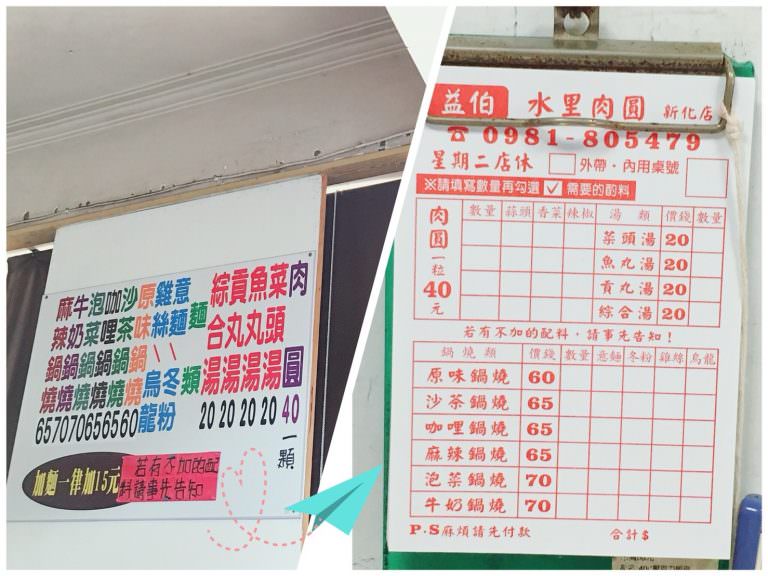 肉圓40一顆
菜頭湯20
魚丸湯20
貢丸湯20
綜合湯20
麵類
意麵、冬粉
雞絲、烏龍
原味鍋燒60
沙茶鍋燒65
咖哩鍋燒65
泡菜鍋燒70
牛奶鍋燒70
麻辣鍋燒65
加麵一律加15元
若有不加的配
料請事先告知
益伯 水里肉圓 新化店
☎ 0981-805479
星期二店休 □外帶、內用桌號
※請填寫數量再勾選☑需要的酌料
肉圓一粒40元
數量 蒜頭 香菜 辣椒 湯類 價錢 數量
菜頭湯 20
魚丸湯 20
貢丸湯 20
綜合湯 20
若有不加的配料,請事先告知!
鍋燒類 價錢 數量 意麵 冬粉 雞絲 烏龍
原味鍋燒 60
沙茶鍋燒 65
咖哩鍋燒 65
麻辣鍋燒 65
泡菜鍋燒 70
牛奶鍋燒 70
P.S麻煩請先付款 合計$